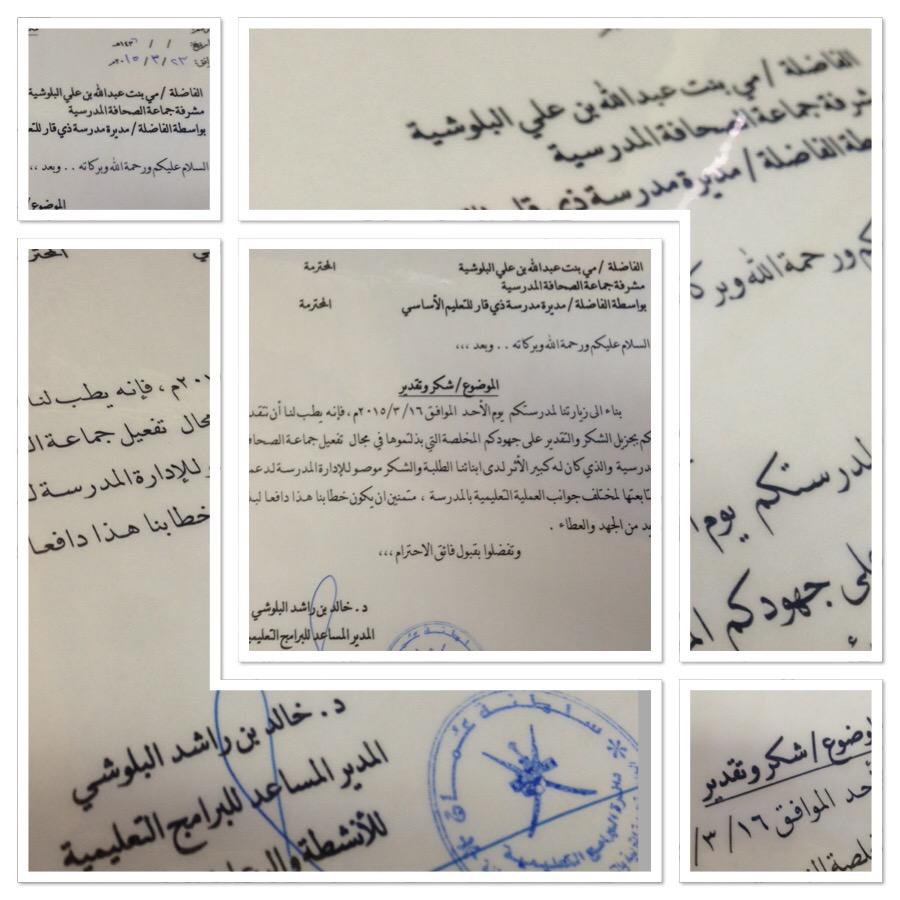 الموافق: ٢٣ / ٣ / ٢٠١٥م
الفاضلة / مي بنت عبدالله بن علي البلوشية
مشرفة جماعة الصحافة المدرسية
بواسطة الفاضلة / مديرة مدرسة ذي قار للتع
السلام عليكم ورحمة الله وبركاته .. وبعد ،،
الموضوع /
الفاضلة / مي بنت عبدالله بن علي البلوشية
شرفة جماعة الصحافة المدرسية
طة الفاضلة / مديرة مدرسة ذي قار
كم ورحمة الله وبركا
لمدرستكم يوم ا
على جهودكم الم
الفاضلة / مي بنت عبدالله بن علي البلوشية المحترمة
مشرفة جماعة الصحافة المدرسية
بواسطة الفاضلة / مديرة مدرسة ذي قار للتعليم الأساسي المحترمة
السلام عليكم ورحمة الله وبركاته .. وبعد ،،،
الموضوع / شكر وتقدير
بناء الى زيارتنا لمدرستكم يوم الأحد الموافق ٢٠١٥/٣/١٦م ، فإنه يطب لنا أن نتقد
كم بجزيل الشكر والتقدير على جهودكم المخلصة التي بذلتموها في مجال تفعيل جماعة الصحاف
درسية والذي كان له كبير الأثر لدى ابنائنا الطلبة والشكر موصو للإدارة المدرسة لدعم
تابعتها لمختلف جوانب العملية التعليمية بالمدرسة ، متمنين ان يكون خطابنا هذا دافعا لبذ
يد من الجهد والعطاء .
وتفضلوا بقبول فائق الاحترام ،،،
د . خالد بن راشد البلوشي
المدير المساعد للبرامج التعليمي
المحتر
٢٠١م ، فإنه يطب لنا
مجال تفعيل جماعة ال
و للإدارة المدرسة ل
خطابنا هذا دافعا
د . خالد بن راشد البلوشي
المدير المساعد للبرامج التعليمية
للأنشطة وال
سلطنة عمان
وضوع / شكر وتقدير
أحد الموافق ١٦ / ٣ /
خلصة ال